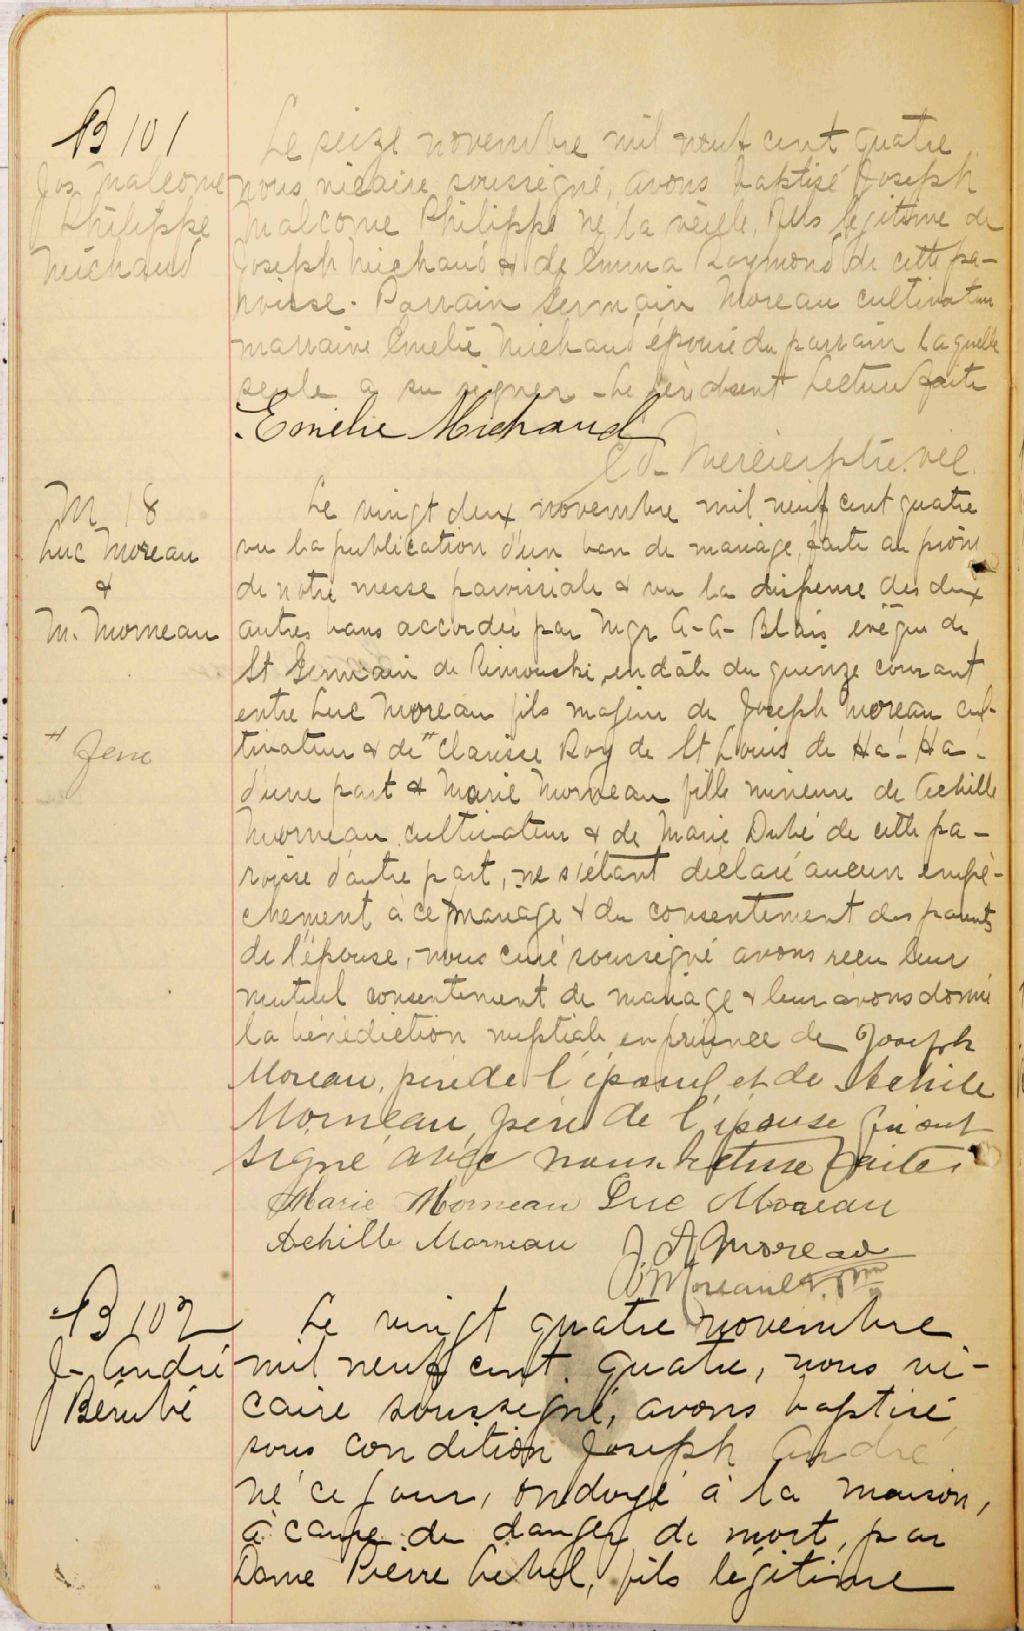 B 101
Jos Malcome
Philippe
Michaud
Le seize novembre mil neuf cent quatre
nous vicaire soussigné, avons baptisé Joseph
Malcome Philippe né la veille, fils légitime de
Joseph Michaud & de Emma Raymond de cette pa-
roisse. Parrain Germain Moreau cultivateur
marraine Emelie Michaud épouse du parrain laquelle
seule a su signer - Le père absent Lecture faite
Emélie Michaud
Ed. Mercier ptre. vic.
M 18
Luc Moreau
&
M. Morneau
Le vingt deux novembre mil neuf cent quatre
vu la publication d'un ban de mariage, faite au prône
de notre messe paroissiale & vu la dispense des deux
autres bans accordée par Mgr A-A- Blais évêque de
St Germain de Rimouski, en date du quinze courant
entre Luc Moreau fils majeur de Joseph Moreau cul-
tivateur & de # Clarisse Roy de St Louis de Ha! Ha!
# feue
d'une part & Marie Morneau fille mineure de Achille
Morneau cultivateur & de Marie Dubé de cette pa-
roisse d'autre part, ne s'étant déclaré aucun empê-
chement à ce mariage & du consentement des parents
de l'épouse, nous curé soussigné avons reçu leur
mutuel consentement de mariage & leur avons donné
la bénédiction nuptiale en présence de Joseph
Moreau, père de l'époux et de Achile
Morneau père de l'épouse qui ont
signé avec nous. Lecture faite.
Marie Morneau Luc Moreau
Achille Morneau J A Moreau
B 102
J- André
Bérubé
Le vingt quatre novembre
mil neuf cent quatre, nous vi-
caire soussigné, avons baptisé
sous condition Joseph André
né ce jour, ondoyé à la maison,
à cause du danger de mort, par
Dame Pierre Lebel, fils légitime